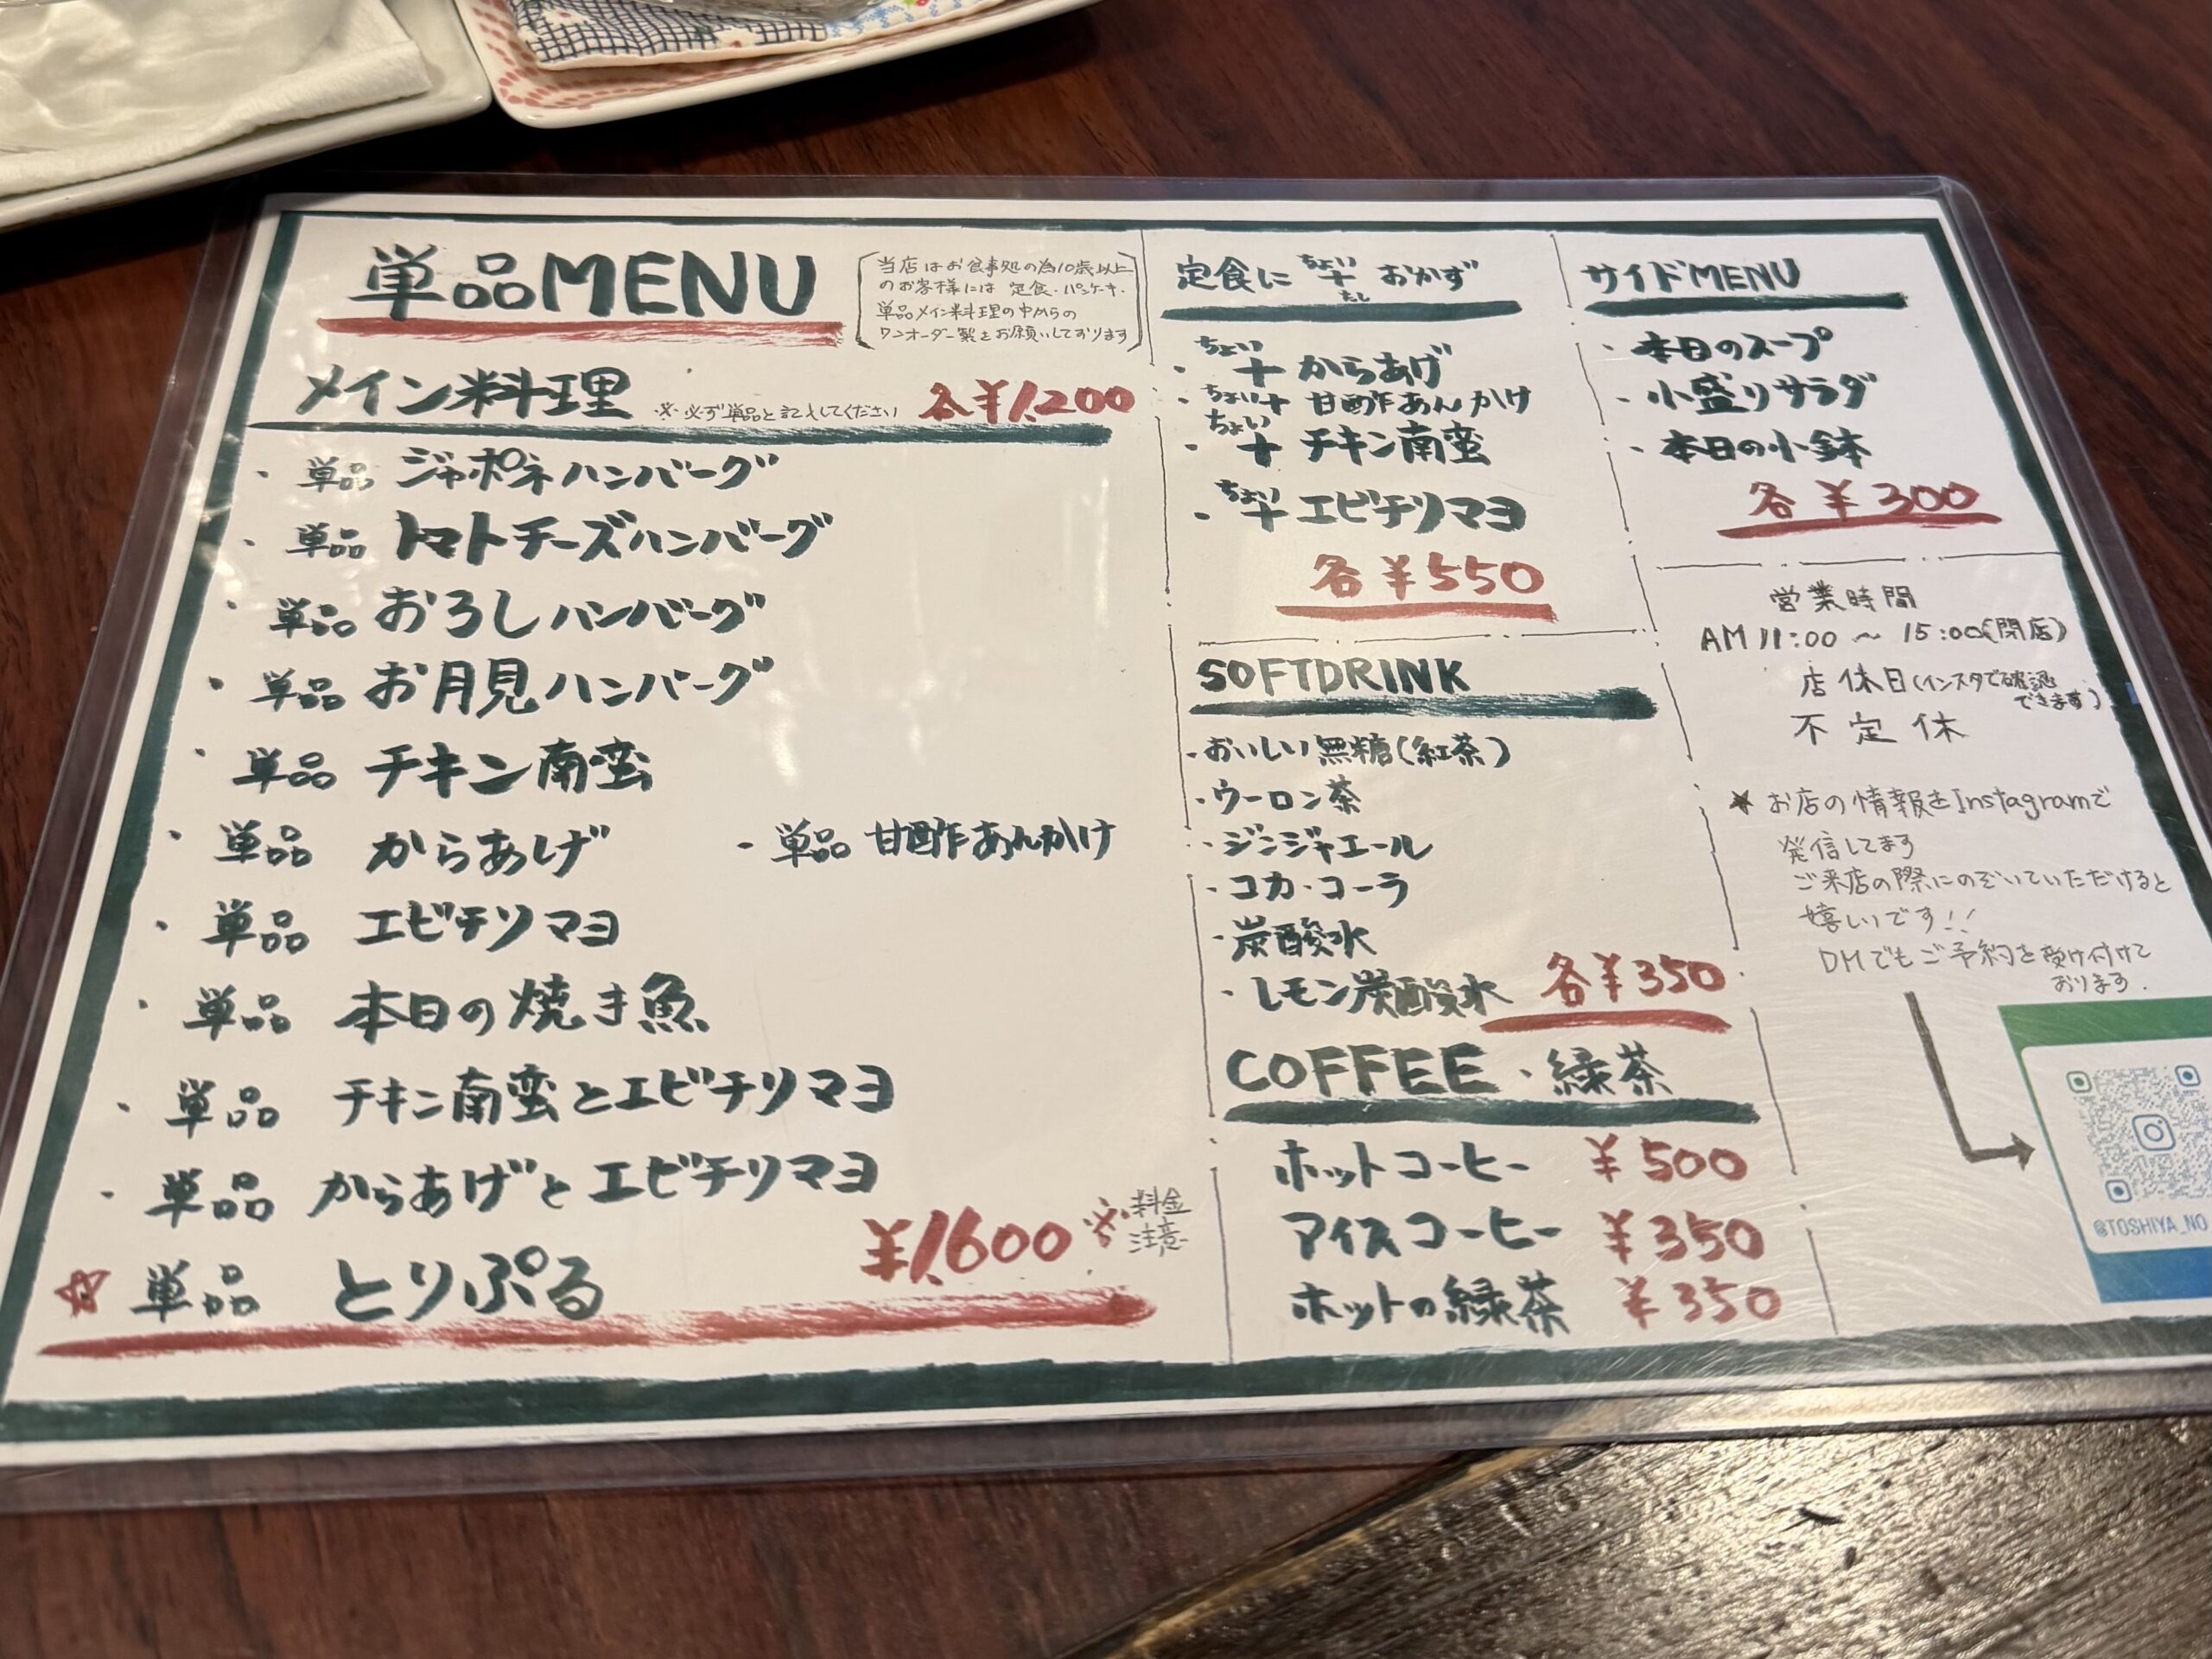 単品MENU
当店はお食事処の為10歳以上
のお客様には 定食・パンケーキ・
単品メイン料理の中からの
ワンオーダー制をお願いしております
メイン料理 ※必ず単品と記入してください 各¥1,200
・単品 ジャポネハンバーグ
・単品 トマトチーズハンバーグ
・単品 おろしハンバーグ
・単品 お月見ハンバーグ
・単品 チキン南蛮
・単品 からあげ ・単品 甘酢あんかけ
・単品 エビチリマヨ
・単品 本日の焼き魚
・単品 チキン南蛮とエビチリマヨ
・単品 からあげとエビチリマヨ
☆単品 とりぷる ¥1,600 ※料金注意
定食に ちょい+たし おかず
・ちょい+ からあげ
・ちょい+ 甘酢あんかけ
・ちょい+ チキン南蛮
・ちょい+ エビチリマヨ
各¥550
SOFTDRINK
・おいしい無糖(紅茶)
・ウーロン茶
・ジンジャエール
・コカ・コーラ
・炭酸水
・レモン炭酸水 各¥350
COFFEE・緑茶
ホットコーヒー ¥500
アイスコーヒー ¥350
ホットの緑茶 ¥350
サイドMENU
・本日のスープ
・小盛りサラダ
・本日の小鉢
各¥300
営業時間
AM11:00〜15:00(閉店)
店休日(インスタで確認
できます)
不定休
★お店の情報をInstagramで
発信してます
ご来店の際にのぞいていただけると
嬉しいです!!
DMでもご予約を受け付けて
おります.
@TOSHIYA_NO